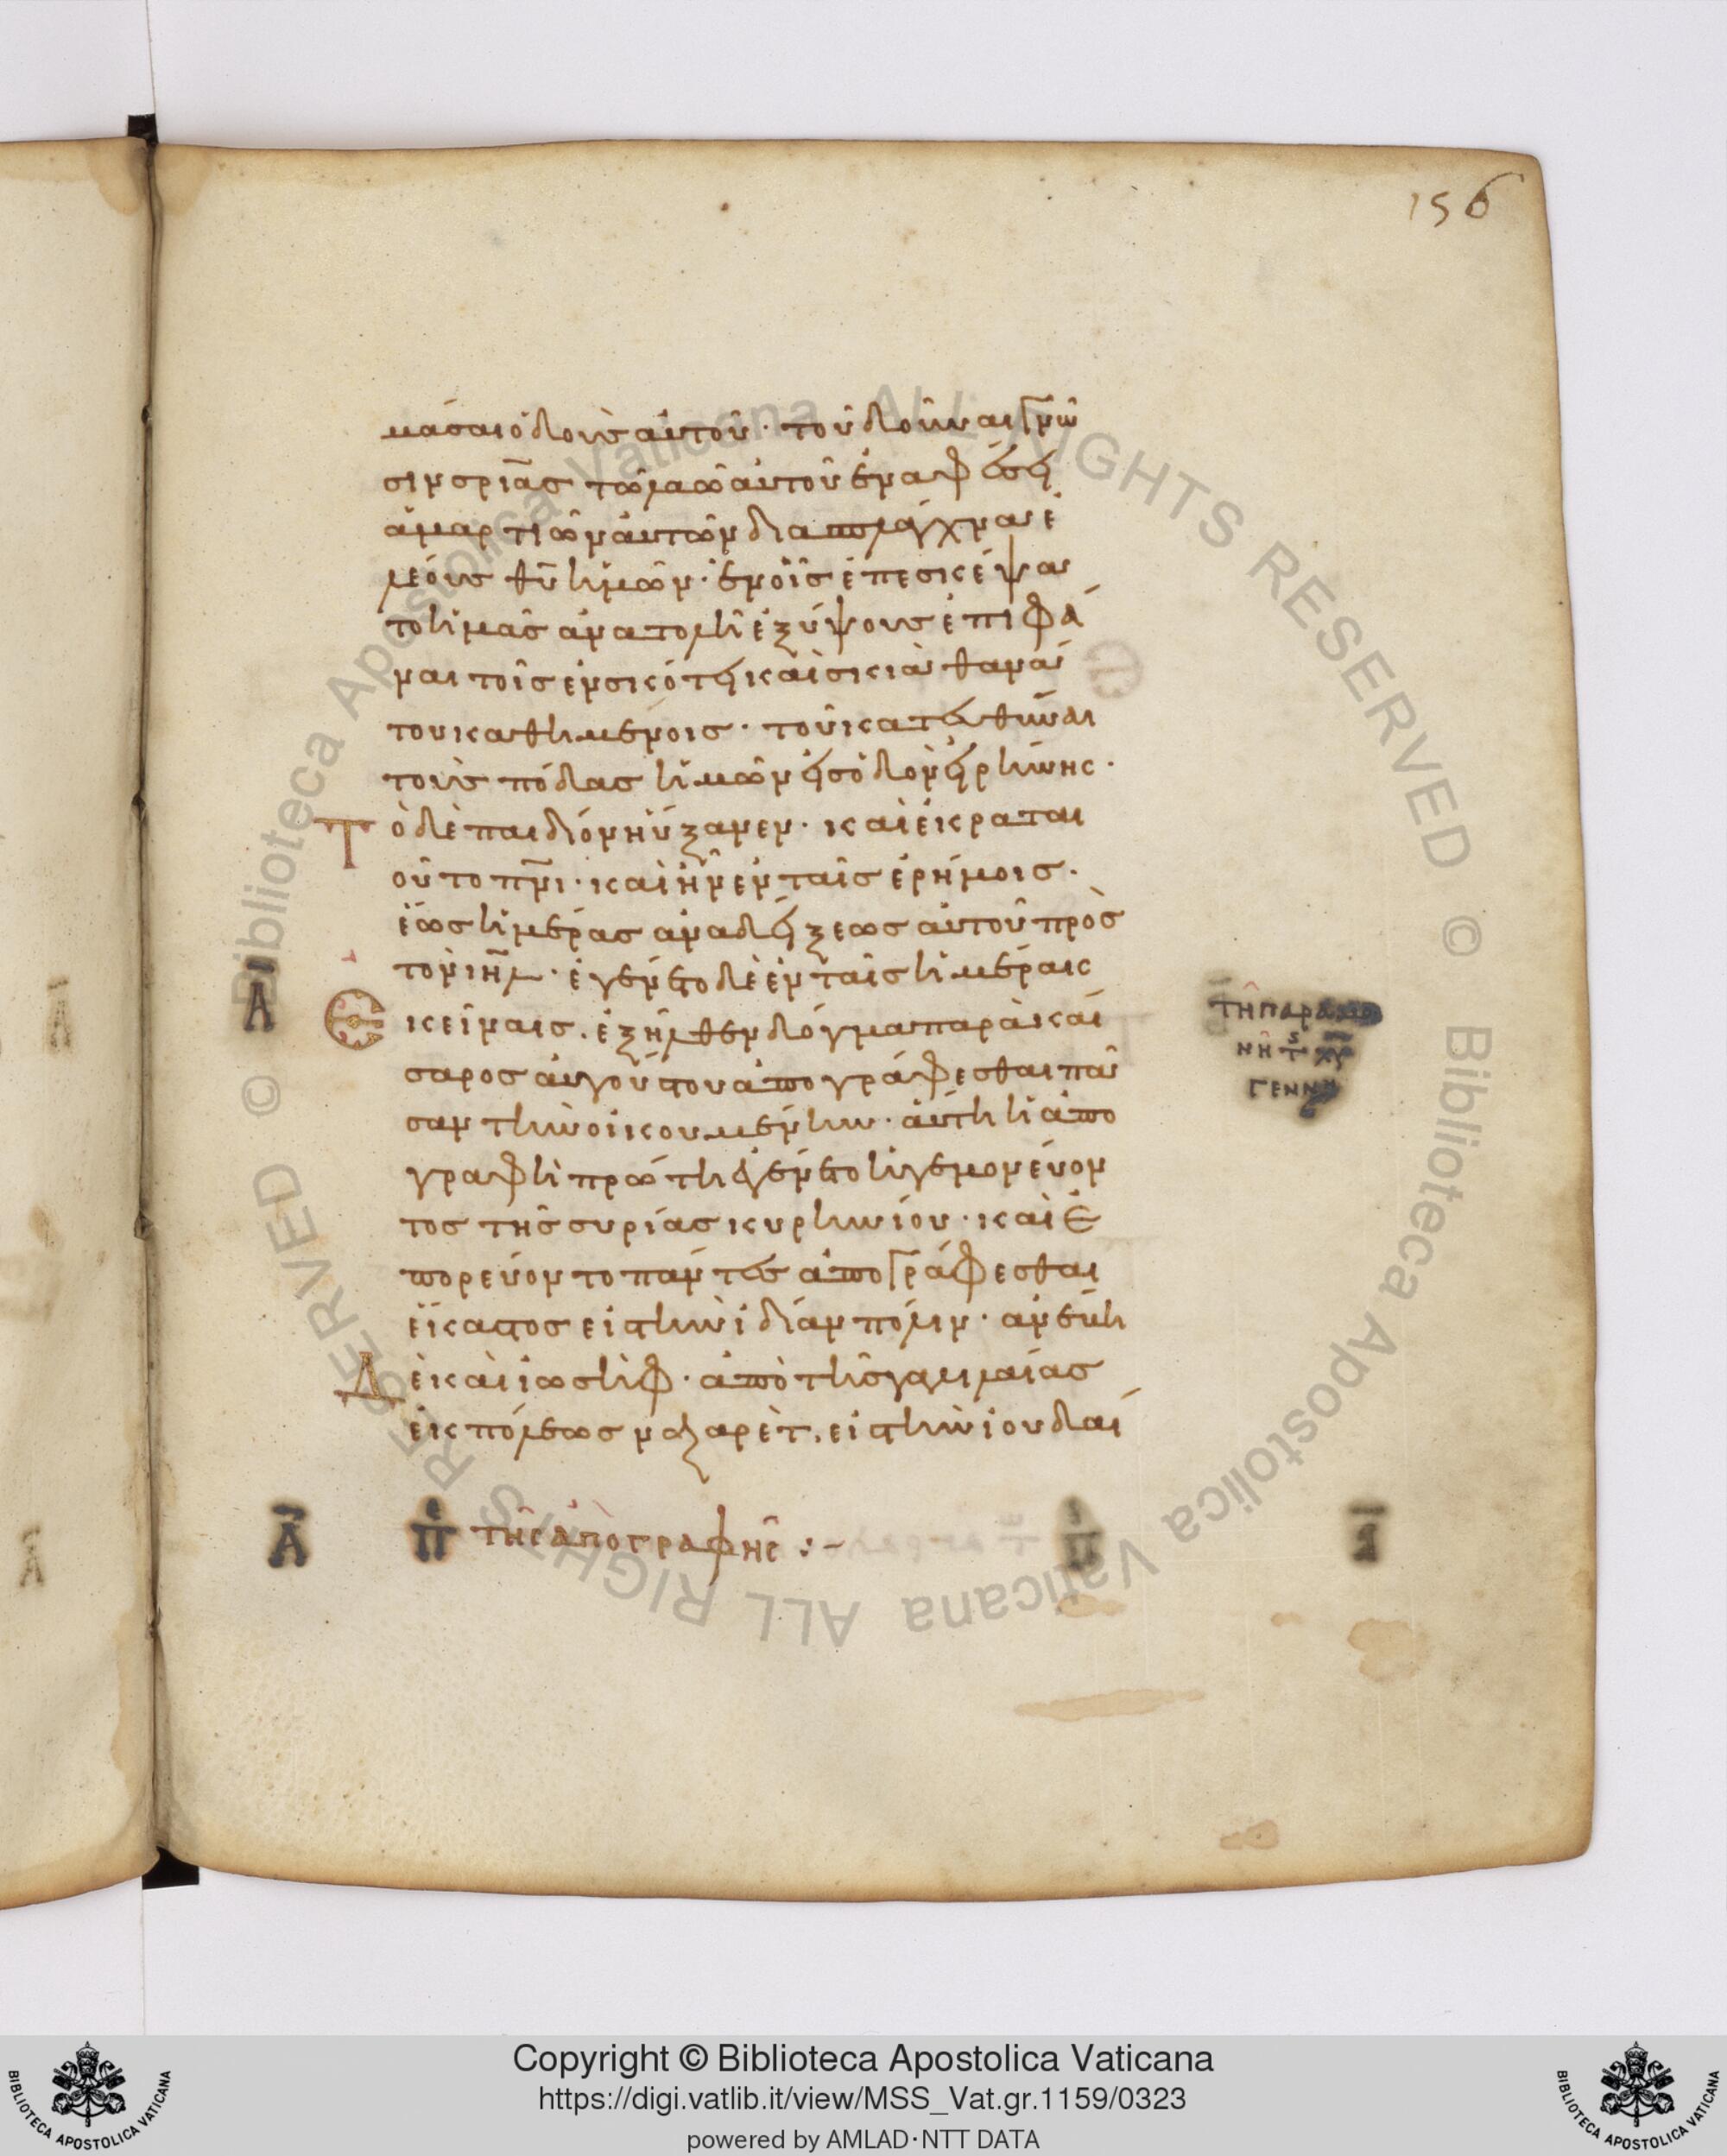 156
μάσαι ὁδοὺς αὐτοῦ· τοῦ δοῦναι γνῶ
σιν σρίας τῶ λαῶ αὐτοῦ ἐν ἀφέσει
ἁμαρτιῶν αὐτῶν διὰ σπλάγχνα ἐ
λέους θῦ ἡμῶν· ἐν οἷς ἐπεσκέψα
το ἡμᾶς ἀνατολὴ ἐξ ὕψους ἐπιφᾶ
ναι τοῖς ἐν σκότει καὶ σκιᾶ θανά
του καθημένοις· τοῦ κατευθῦναι
τοὺς πόδας ἡμῶν εἰς ὁδὸν εἰρήνης·
Τὸ δὲ παιδίον ηὔξανεν· καὶ ἐκραται
οῦτο πνι· καὶ ἦν ἐν ταῖς ἐρήμοις·
ἕως ἡμέρας ἀναδείξεως αὐτοῦ πρὸς
τὸν ιηλ· ἐγένετο δὲ ἐν ταῖς ἡμέραις
Α Ἐκείναις. ἐξῆλθεν δόγμα παρὰ καί
σαρος αὐγούστου ἀπογράφεσθαι πᾶ
σαν τὴν οἰκουμένην· αὕτη ἡ ἀπο
γραφὴ πρώτη ἐγένετο ἡγεμονεύον
τος τῆς συρίας κυρηνίου· καὶ ἐ
πορεύοντο πάντες ἀπογράφεσθαι
ἕκαστος εἰς τὴν ἰδίαν πόλιν· ἀνέβη
Δὲ καὶ ἰωσὴφ· ἀπὸ τῆς γαλιλαίας
ἐκ πόλεως ναζαρὲτ. εἰς τὴν ἰουδαί
τῆ παρα
νῆ τ χρ
γενν
Α π τῆς ἀπογραφῆς :-
Copyright © Biblioteca Apostolica Vaticana
https://digi.vatlib.it/view/MSS_Vat.gr.1159/0323
powered by AMLAD·NTT DATA
BIBLIOTECA APOSTOLICA VATICANA
BIBLIOTECA APOSTOLICA VATICANA
© Biblioteca Apostolica Vaticana ALL RIGHTS RESERVED
© Biblioteca Apostolica Vaticana ALL RIGHTS RESERVED